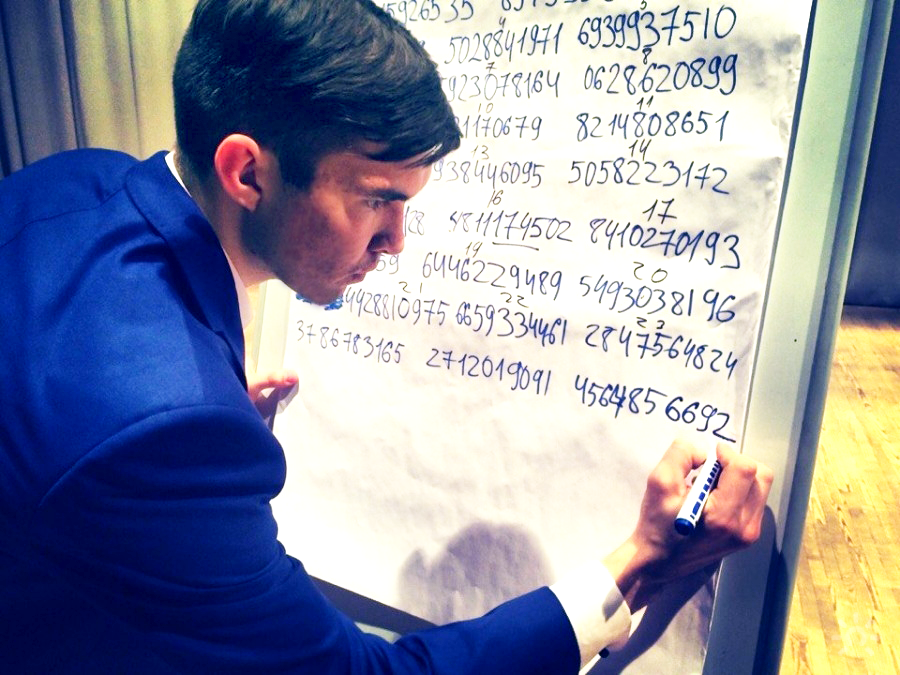 5926535
4 5
5028841971 6939937510
7 8
923078164 0628620899
10 11
1170679 8214808651
13 14
938446095 5058223172
16 17
128 4811174502 8410270193
19 20
59 6446229489 5493038196
21 22 23
4428810975 6659334461 2847564824
3786783165 2712019091 4564856692